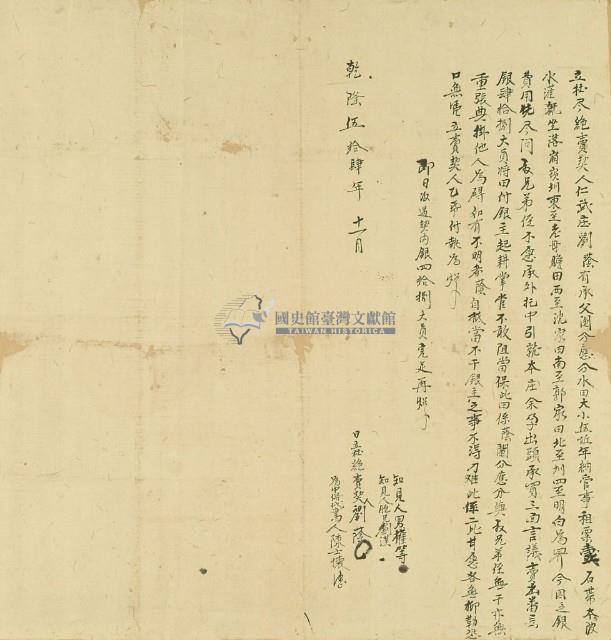 立杜尽絶賣契人仁武庄劉蔭有承父鬮分應分水田大小伍坵年納管事租粟 石帶本陂
水涯㶑坐落 圳東至老母贍田西至沈家田南至郭家田北至圳四至明白為界今因乏銀
費用先尽問叔兄弟侄不愿承外托中引就本庄余孕出頭承買三面言議賣出番
銀肆拾捌大員將田付銀主起耕掌管不敢阻當保此田係蔭鬮分應分與叔兄弟侄無干亦無
重張典掛他人為碍如有不明者蔭自抵當不干銀主之事不得刁难此係二比甘愿各無抑勒恐
口無憑立賣契人乙帋付執為炤
即日收過契內銀四拾捌大員完足再炤
乾隆伍拾肆年十一月
知見人男權等
知見人胞兄劉漢
日立杜絶賣契人劉蔭
為中併代書人陳士懷
國史館臺灣文獻館
TAIWAN HISTORICA